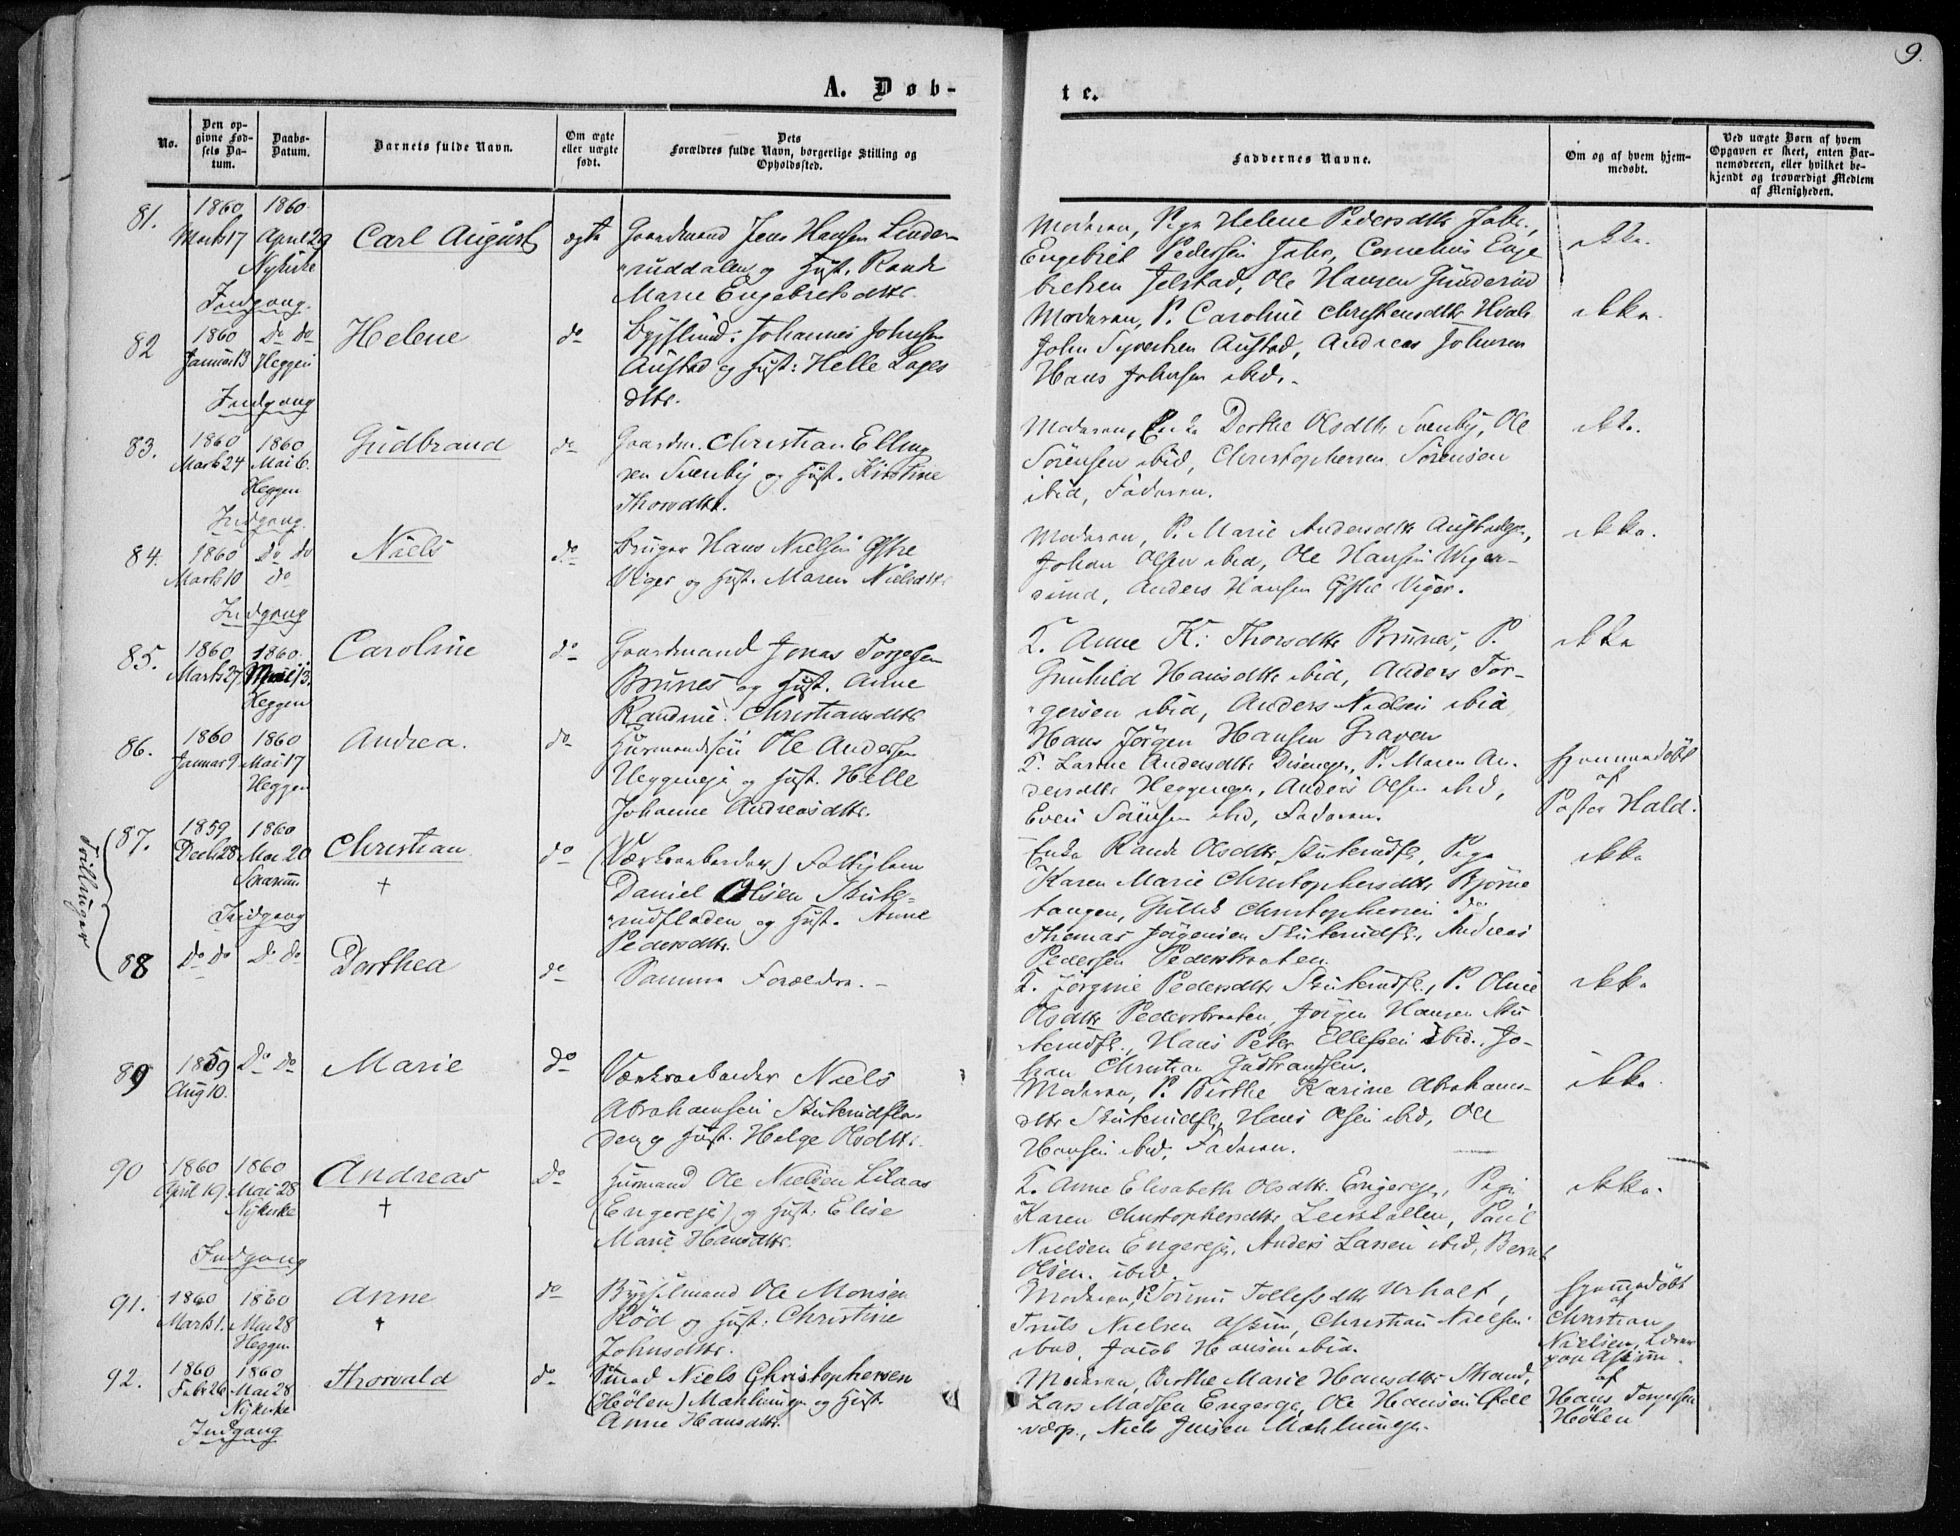 9.
A. Døb-
te.
No.
Den op-
givne Fød-
sels Da-
tum.
Daabs-
Datum.
Barnets fulde Navn.
Om ægte
eller uægte
født.
Dets
Forældres fulde Navn, borgerlige Stilling og
Opholdssted.
Faddernes Navne.
Om og af hvem hjem-
medøbt.
Ved uægte Børn af hvem
Opgaven er skeet, enten Bar-
nemoderen, eller hvilket be-
kjendt og troværdigt Medlem
af Menigheden.
81.
1860
Marts 17
1860
April 29
Nykirke
Indgang.
Carl August
ægte
Gaardmand Jens Hansen Linde-
ruddalen og Hust. Randi
Marie Engebretsdttr.
Moderen, Pige Helene Pedersdttr
Engebret Pedersen Cornelius Enge
bretsen Jelstad, Ole Hansen Gunderud
ikke.
82
1860
Januar 13
Do Do
Heggen
Indgang
Helene
do
Johannes Johnsen
Austad og Hust: Helle
dttr.
Moderen, P. Caroline Christensdttr Hvale
John Syvertsen Austad, Andreas Johnsen
Hans Johnsen ibid.
ikke.
83.
1860
Marts 24
1860
Mai 6.
Heggen
Indgang.
Gudbrand
do
Gaardm. Christian Elling
sen Svenby og Hust. Kirstine
Thorsdttr.
Moderen, Enke Dorthe Olsdttr Svenby, Ole
Sörensen ibid, Christophersen Sörensen
ibid, Faderen.
ikke.
84.
1860
Marts 10
Do Do
do
Indgang
Niels
do
Bruger Hans Nielsen Østre
Viger og Hust. Maren Nielsdttr.
Moderen, P. Marie Andersdttr
Johan Olsen ibid, Ole Hansen Viger-
sund, Anders Hansen Østre Viger.
ikke.
85.
1860
Marts 27
1860
Mai 13.
Heggen
Caroline
do
Gaardmand Jonas Torgersen
Brunes og Hust. Anne
Randine Christiansdttr
T. Anne K: Thorsdttr Brunes, P.
Gunhild Hansdttr ibid, Anders Tor-
gersen ibid, Anders Nielsen ibid
Hans Jörgen Hansen Graven
ikke
86.
1860
Januar 9
1860
Mai 17
Heggen
Andrea.
do
Ole Andersen
Heggeneje og Hust. Helle
Johanne Andreasdttr.
T. Larine Andersdttr P. Maren An-
dersdttr Heggeneje, Anders Olsen ibid,
Even Sörensen ibid, Faderen.
hjemmedöbt
af
Pastor Hald.
Tvillinger
87.
1859
Decbr 28
1860
Mai 20
Snarum
Indgang
Christian
†
do
(Værksarbeider) Fattiglem
Daniel Olsen Skute-
rudfladen og Hust. Anne
Pedersdttr.
Enke Randi Olsdttr Skuterudfl, Pige
Karen Marie Christophersdttr Björne
tangen, Gullik Christophersen do
Thomas Jörgensen Skuterudfl, Andreas
Pedersen Pedersbraaten.
ikke
88
Do Do
Do Do
Dorthea
do
Samme Forældre. -
T. Jörgine Pedersdttr Skuterudfl., P. Oline
Olsdttr Pedersbraaten, Jörgen Hansen Sku
terudfl., Hans Peter Ellefsen ibid. Jo-
han Christian Gudbrandsen.
ikke
89
1859
Aug 10.
Do Do
Marie
do
Værksarbeider Niels
Abrahamsen Skuterudfla-
den og Hust. Helge Olsdttr.
Moderen, P. Birthe Karine Abrahams-
dttr Skuterudfl, Hans Olsen ibid, Ole
Hansen ibid, Faderen.
ikke.
90
1860
April 19
1860
Mai 28
Nykirke
Indgang
Andreas
†
Do
Husmand Ole Nielsen Lilaas
(Engereje) og Hust. Elise
Marie Hansdttr.
T. Anne Elisabeth Olsdttr. Engereje, Pige
Karen Christophersdttr Leerstallen, Poul
Nielsen Engereje, Anders Larsen ibid, Bernt
Olsen ibid.
ikke.
91.
1860
Marts 1.
1860
Mai 28
Heggen
Anne
†
do
Bygselmand Ole Monsen
Röd og Hust. Christine
Johnsdttr.
Moderen, P. Tollefsdttr Urholt,
Truls Nielsen Askim, Christian Nielsen
ibid, Jacob Hansen ibid.
hjemmedöbt
af
Christian
Nielsen, Lærer
paa Askim.
92.
1860
Febr 26
1860
Mai 28
Nykirke
Indgang
Thorvald
do
Smed Niels Christophersen
(Hölen) Mæhlumeje og Hust.
Anne Hansdttr.
Moderen, Birthe Marie Hansdttr Strand,
Lars Madsen Engereje, Ole Hansen
Niels Jensen Mæhlumeje.
af
Hans Torgersen
Hölen